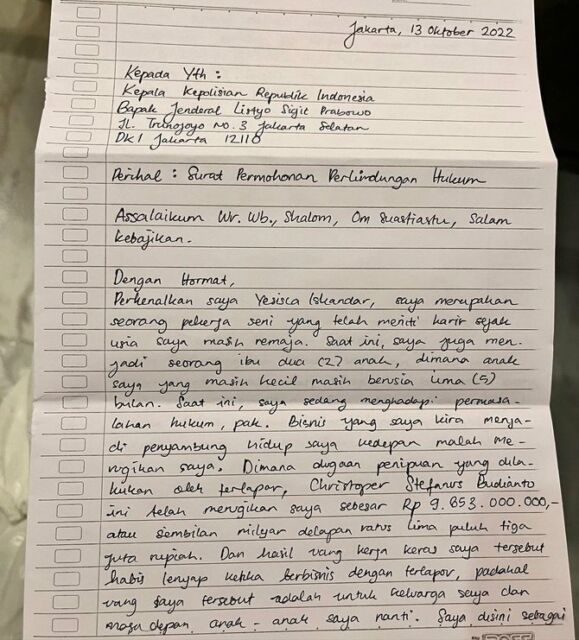 Jakarta, 13 Oktober 2022
Kepada Yth :
Kepala Kepolisian Republik Indonesia
Bapak Jenderal Listyo Sigit Prabowo
Jl. Trunojoyo No. 3 Jakarta Selatan
DKI Jakarta 12110
Perihal : Surat Permohonan Perlindungan Hukum
Assalaikum Wr. Wb., Shalom, Om Suastiastu, Salam
Kebajikan.
Dengan Hormat,
Perkenalkan saya Yesisca Iskandar, saya merupakan
seorang pekerja seni yang telah meniti karir sejak
usia saya masih remaja. Saat ini, saya juga men-
jadi seorang ibu dua (2) anak, dimana anak
saya yang masih kecil masih berusia lima (5)
bulan. Saat ini, saya sedang menghadapi permasa-
lahan hukum, pak. Bisnis yang saya kira menja-
di penyambung hidup saya kedepan malah me-
rugikan saya. Dimana dugaan penipuan yang dila-
kukan oleh terlapor, Christoper Stefanus Budianto
ini telah merugikan saya sebesar Rp 9.853.000.000,-
atau sembilan milyar delapan ratus lima puluh tiga
juta rupiah. Dan hasil uang kerja keras saya tersebut
habis lenyap ketika berbisnis dengan terlapor, padahal
uang saya tersebut adalah untuk keluarga saya dan
masa depan anak - anak saya nanti. Saya disini sebagai